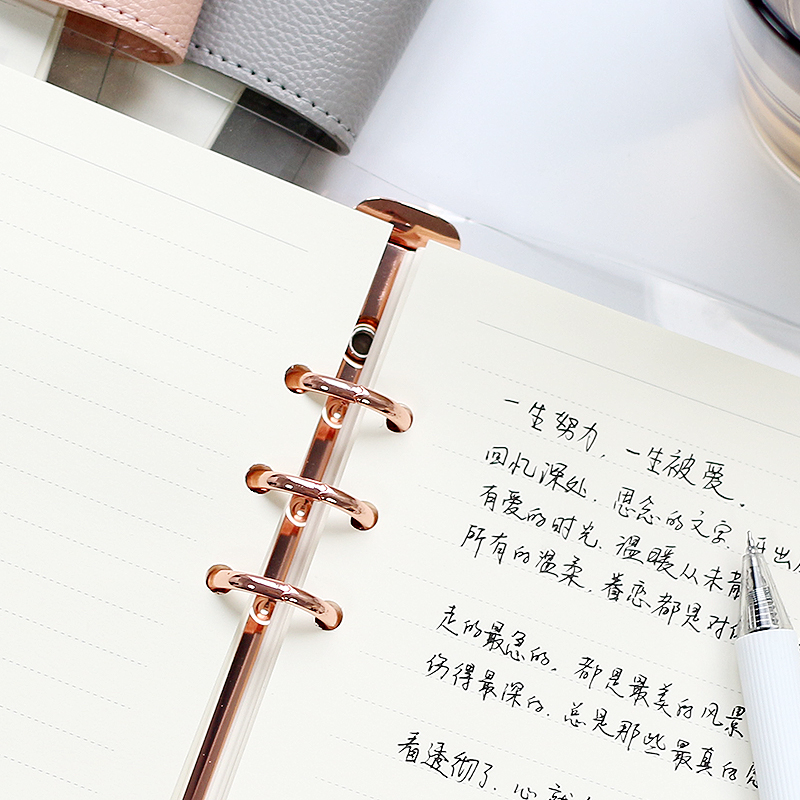 一生努力，一生被爱。
回忆深处．思念的文字．开出
有爱的时光．温暖从未
所有的温柔．眷恋都是对
走的最急的，都是最美的风景
伤得最深的．总是那些最真的
看透彻了．心就